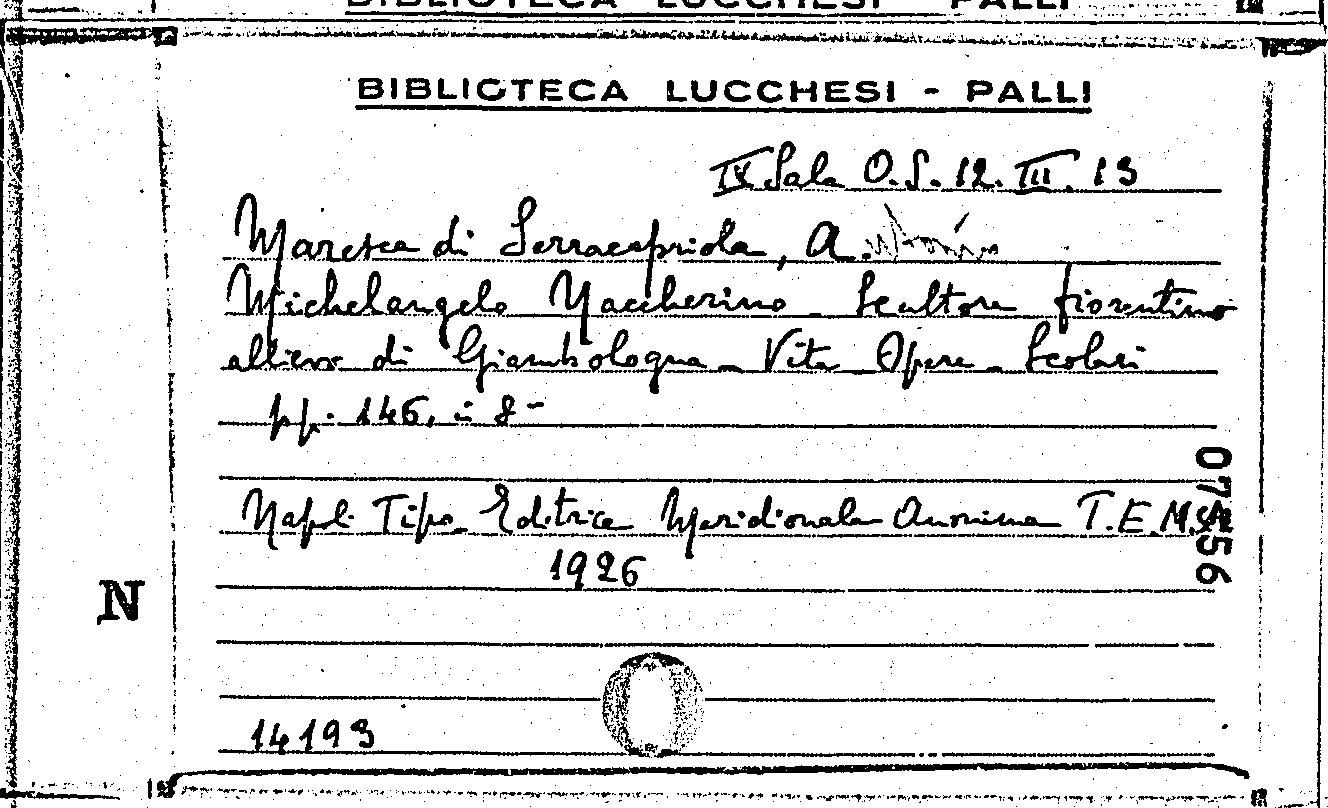 BIBLIOTECA LUCCHESI - PALLI
BIBLIOTECA LUCCHESI - PALLI
IV Sala O.S. 12. III. 13
Maresca di Serracapriola, A.
Michelangelo Naccherino - Scultore fiorentino
allievo di Giambologna - Vita Opere - Scolari
pp. 146, in 8-
Napoli Tipo Editrice Meridionale Anonima T.E.M.A.
1926
07556
N
14193